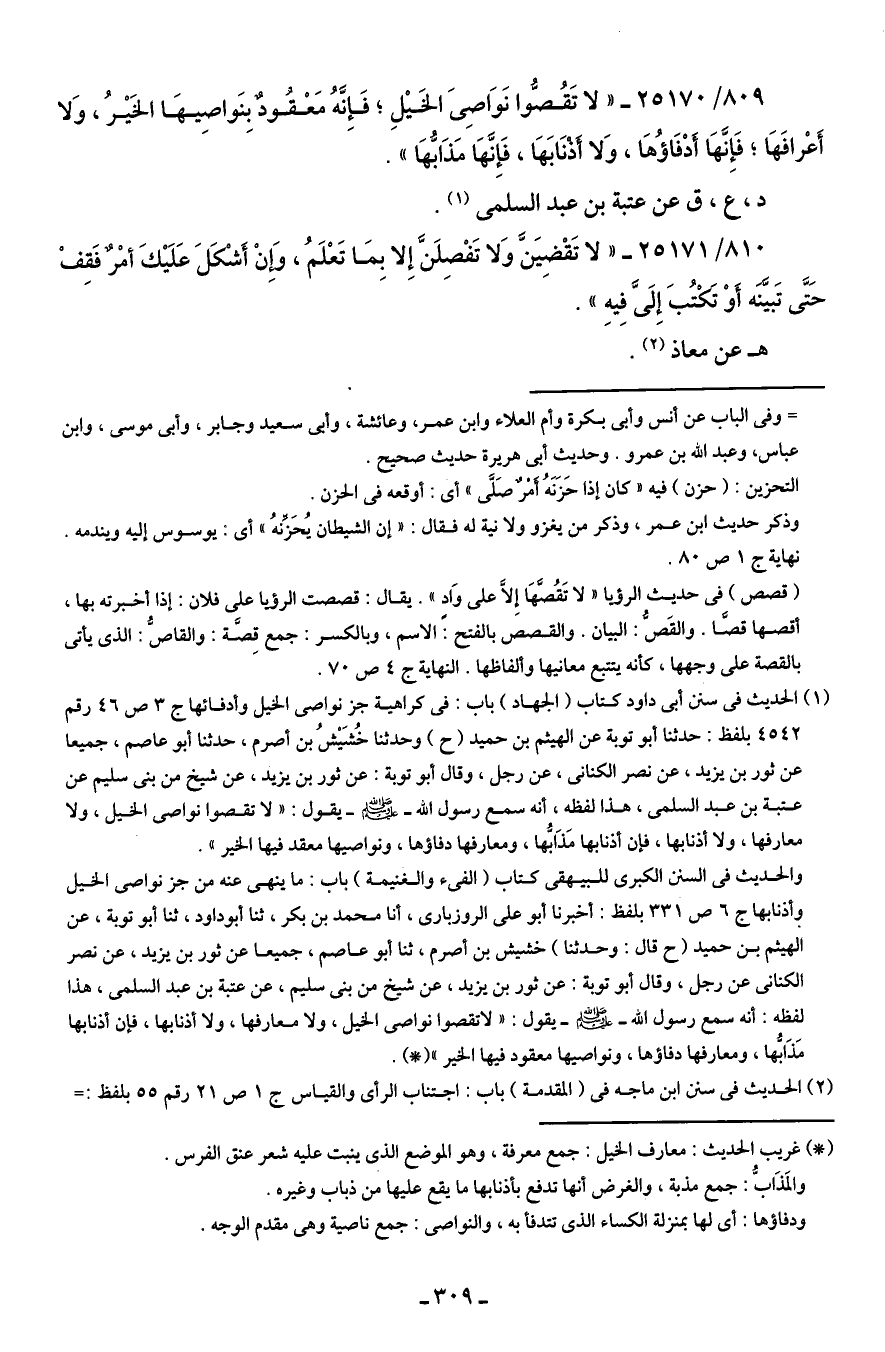 ٨٠٩/ ٢٥١٧٠ ـ « لا تَقُصُّوا نَوَاصِىَ الخَيْلِ ؛ فَإِنَّهُ مَعْقُودٌ بِنَواصِيهَا الخَيْرُ ، وَلا
أَعْرافَهَا ؛ فَإِنَّهَا أَدْفَاؤُهَا ، وَلا أَذْنَابَهَا ، فَإِنَّهَا مَذَابُّهَا » .
د ، ع ، ق عن عتبة بن عبد السلمى (١) .
٨١٠/ ٢٥١٧١ ـ « لا تَقْضِيَنَّ وَلا تَفْصِلَنَّ إِلا بِمَا تَعْلَمُ ، وَإِنْ أَشْكَلَ عَلَيْكَ أَمْرٌ فَقِفْ
حَتَّى تَبَيَّنَه أَوْ تَكْتُبَ إِلَىَّ فِيهِ » .
هـ عن معاذ (٢) .
= وفى الباب عن أنس وأبى بكرة وأم العلاء وابن عمر، وعائشة ، وأبى سعيد وجابر ، وأبى موسى ، وابن
عباس، وعبد الله بن عمرو . وحديث أبى هريرة حديث صحيح .
التحزين : ( حزن ) فيه « كان إذا حَزَنَهُ أَمْرٌ صَلَّى » أى : أوقعه فى الحزن .
وذكر حديث ابن عمر ، وذكر من يغزو ولا نية له فقال : « إن الشيطان يُحَزِّنُهُ » أى : يوسوس إليه ويندمه .
نهاية ج ١ ص ٨٠ .
( قصص ) فى حديث الرؤيا « لا تَقُصَّهَا إِلاَّ على وَادٍ » . يقال : قصصت الرؤيا على فلان : إذا أخبرته بها ،
أقصها قصًّا . والقَصُّ : البيان . والقصص بالفتح : الاسم ، وبالكسر : جمع قِصَّة : والقاصُّ : الذى يأتى
بالقصة على وجهها ، كأنه يتتبع معانيها وألفاظها . النهاية ج ٤ ص ٧٠ .
(١) الحديث فى سنن أبى داود كتاب ( الجهاد ) باب : فى كراهية جز نواصى الخيل وأدفائها ج ٣ ص ٤٦ رقم
٤٥٤٢ بلفظ : حدثنا أبو توبة عن الهيثم بن حميد ( ح ) وحدثنا خُشَيْشُ بن أصرم ، حدثنا أبو عاصم ، جميعا
عن ثور بن يزيد ، عن نصر الكنانى ، عن رجل ، وقال أبو توبة : عن ثور بن يزيد ، عن شيخ من بنى سليم عن
عتبة بن عبد السلمى ، هذا لفظه ، أنه سمع رسول الله ـ ﷺ ـ يقول : « لا تقصوا نواصى الخيل ، ولا
معارفها ، ولا أذنابها ، فإن أذنابها مَذَابُّها ، ومعارفها دفاؤها ، ونواصيها معقد فيها الخير » .
والحديث فى السنن الكبرى للبيهقى كتاب ( الفىء والغنيمة ) باب : ما ينهى عنه من جز نواصى الخيل
وأذنابها ج ٦ ص ٣٣١ بلفظ : أخبرنا أبو على الروزبارى ، أنا محمد بن بكر ، ثنا أبوداود ، ثنا أبو توبة ، عن
الهيثم بن حميد ( ح قال : وحدثنا ) خشيش بن أصرم ، ثنا أبو عاصم ، جميعا عن ثور بن يزيد ، عن نصر
الكنانى عن رجل ، وقال أبو توبة : عن ثور بن يزيد ، عن شيخ من بنى سليم ، عن عتبة بن عبد السلمى ، هذا
لفظه : أنه سمع رسول الله ـ ﷺ ـ يقول : « لاتقصوا نواصى الخيل ، ولا معارفها ، ولا أذنابها ، فإن أذنابها
مَذَابُّها ، ومعارفها دفاؤها ، ونواصيها معقود فيها الخير »(*) .
(٢) الحديث فى سنن ابن ماجه فى ( المقدمة ) باب : اجتناب الرأى والقياس ج ١ ص ٢١ رقم ٥٥ بلفظ :=
(*) غريب الحديث : معارف الخيل : جمع معرفة ، وهو الموضع الذى ينبت عليه شعر عنق الفرس .
والمَذَابُّ : جمع مذبة ، والغرض أنها تدفع بأذنابها ما يقع عليها من ذباب وغيره .
ودفاؤها : أى لها بمنزلة الكساء الذى تتدفأ به ، والنواصى : جمع ناصية وهى مقدم الوجه .
ـ ٣٠٩ ـ